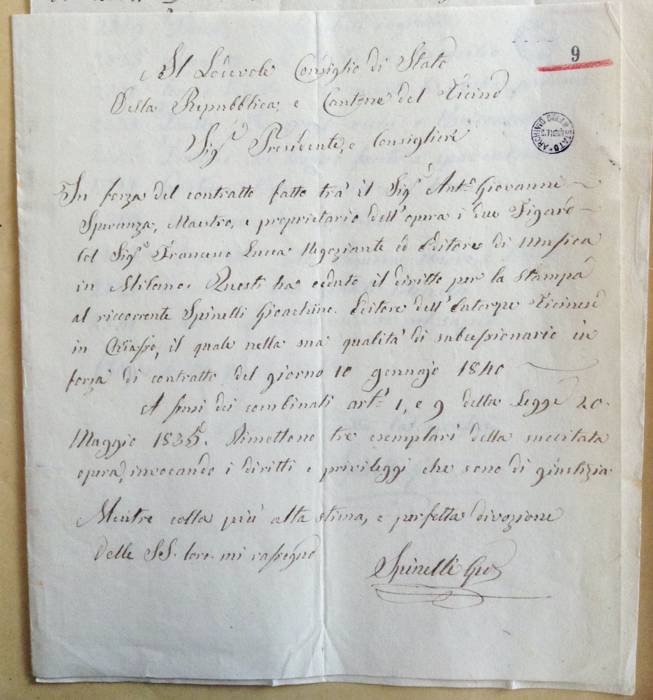 9
Al Lodevole Consiglio di Stato
Della Repubblica, e Cantone del Ticino
Sig.e Presidente, e Consiglieri
ARCHIVIO DELLO STATO
In forza del contratto fatto trà il Sig.e Ant.o Giovanni
Speranza, Maestro, e proprietario dell'opera i due Figaro
col Sig.e Francesco Lucca Negoziante ed Editore di Musica
in Milano. Questi ha ceduto il diritto per la stampa
al ricorrente Spinelli Gioachimo. Editore dell'Euterpe Ticinese
in Chiasso, il quale nella sua qualità di subcessionario in
forza di contratto del giorno 10 gennajo 1840
A sensi dei combinati art.i 1, e 9 della Legge 20.
Maggio 1835. Dimettono tre esemplari della succitata
opera, invocando i diritti e privileggi che sono di giustizia
Mentre colla più alta stima, e perfetta divozione
delle SS. loro. mi rassegno
Spinelli Gio